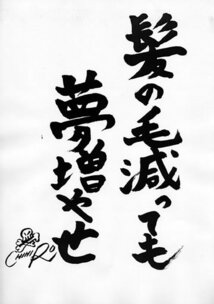 髪の毛減っても
夢増やせ